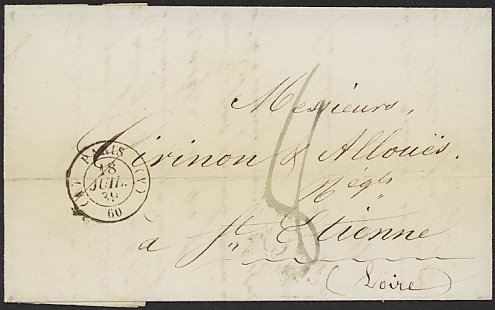 Messieurs,
Girinon & Allouës.
Négts
à St Etienne
(Loire)
PARIS
18
JUIL.
39
60
8